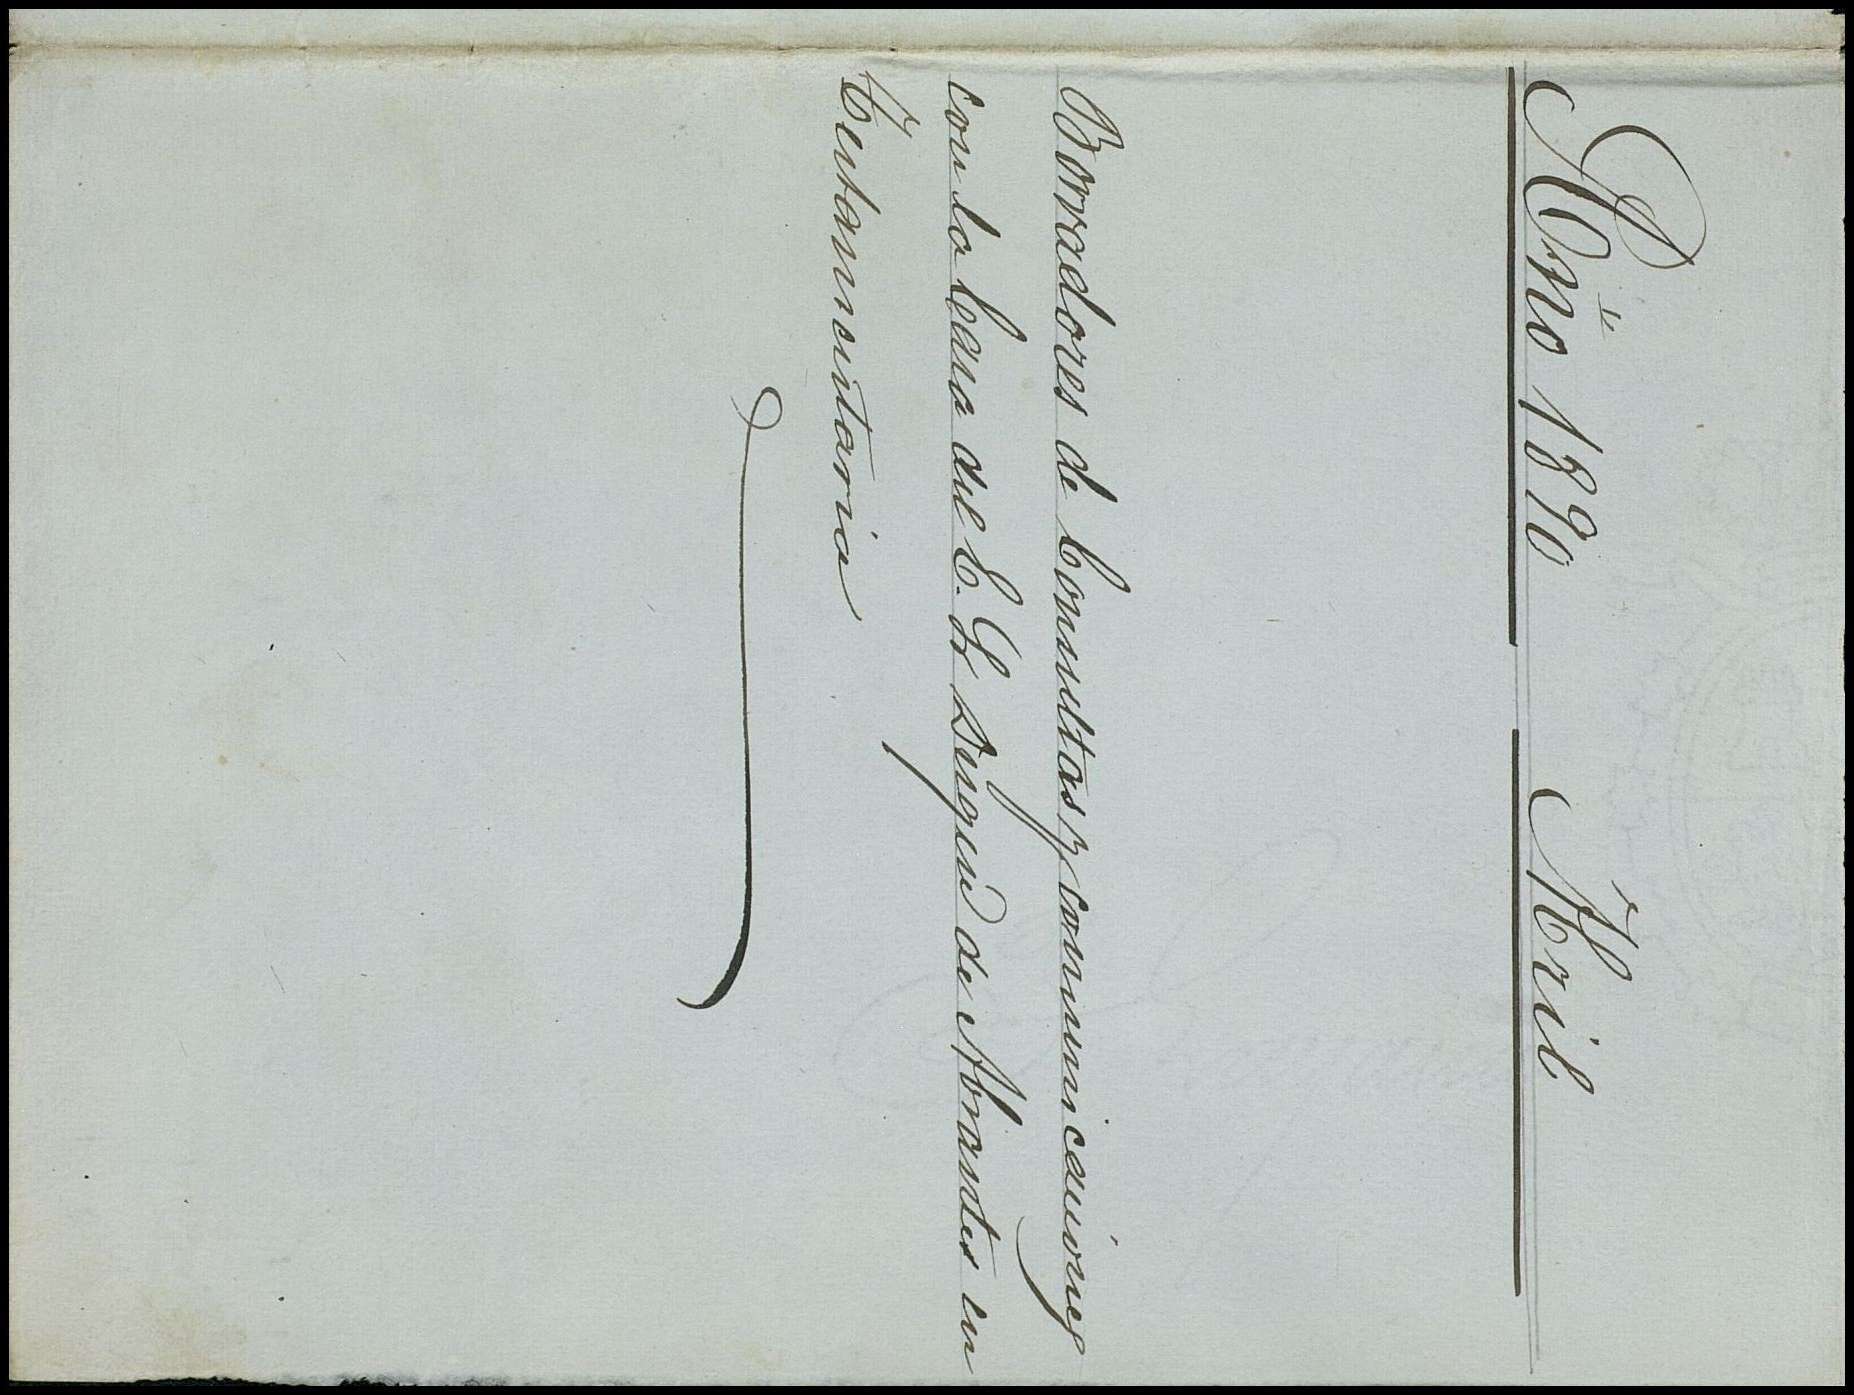 Año 1890. Abril
Borradores de Consultas y comunicaciones
con la Casa del E. Sr. Duque de Abrantes en
Testamentaria